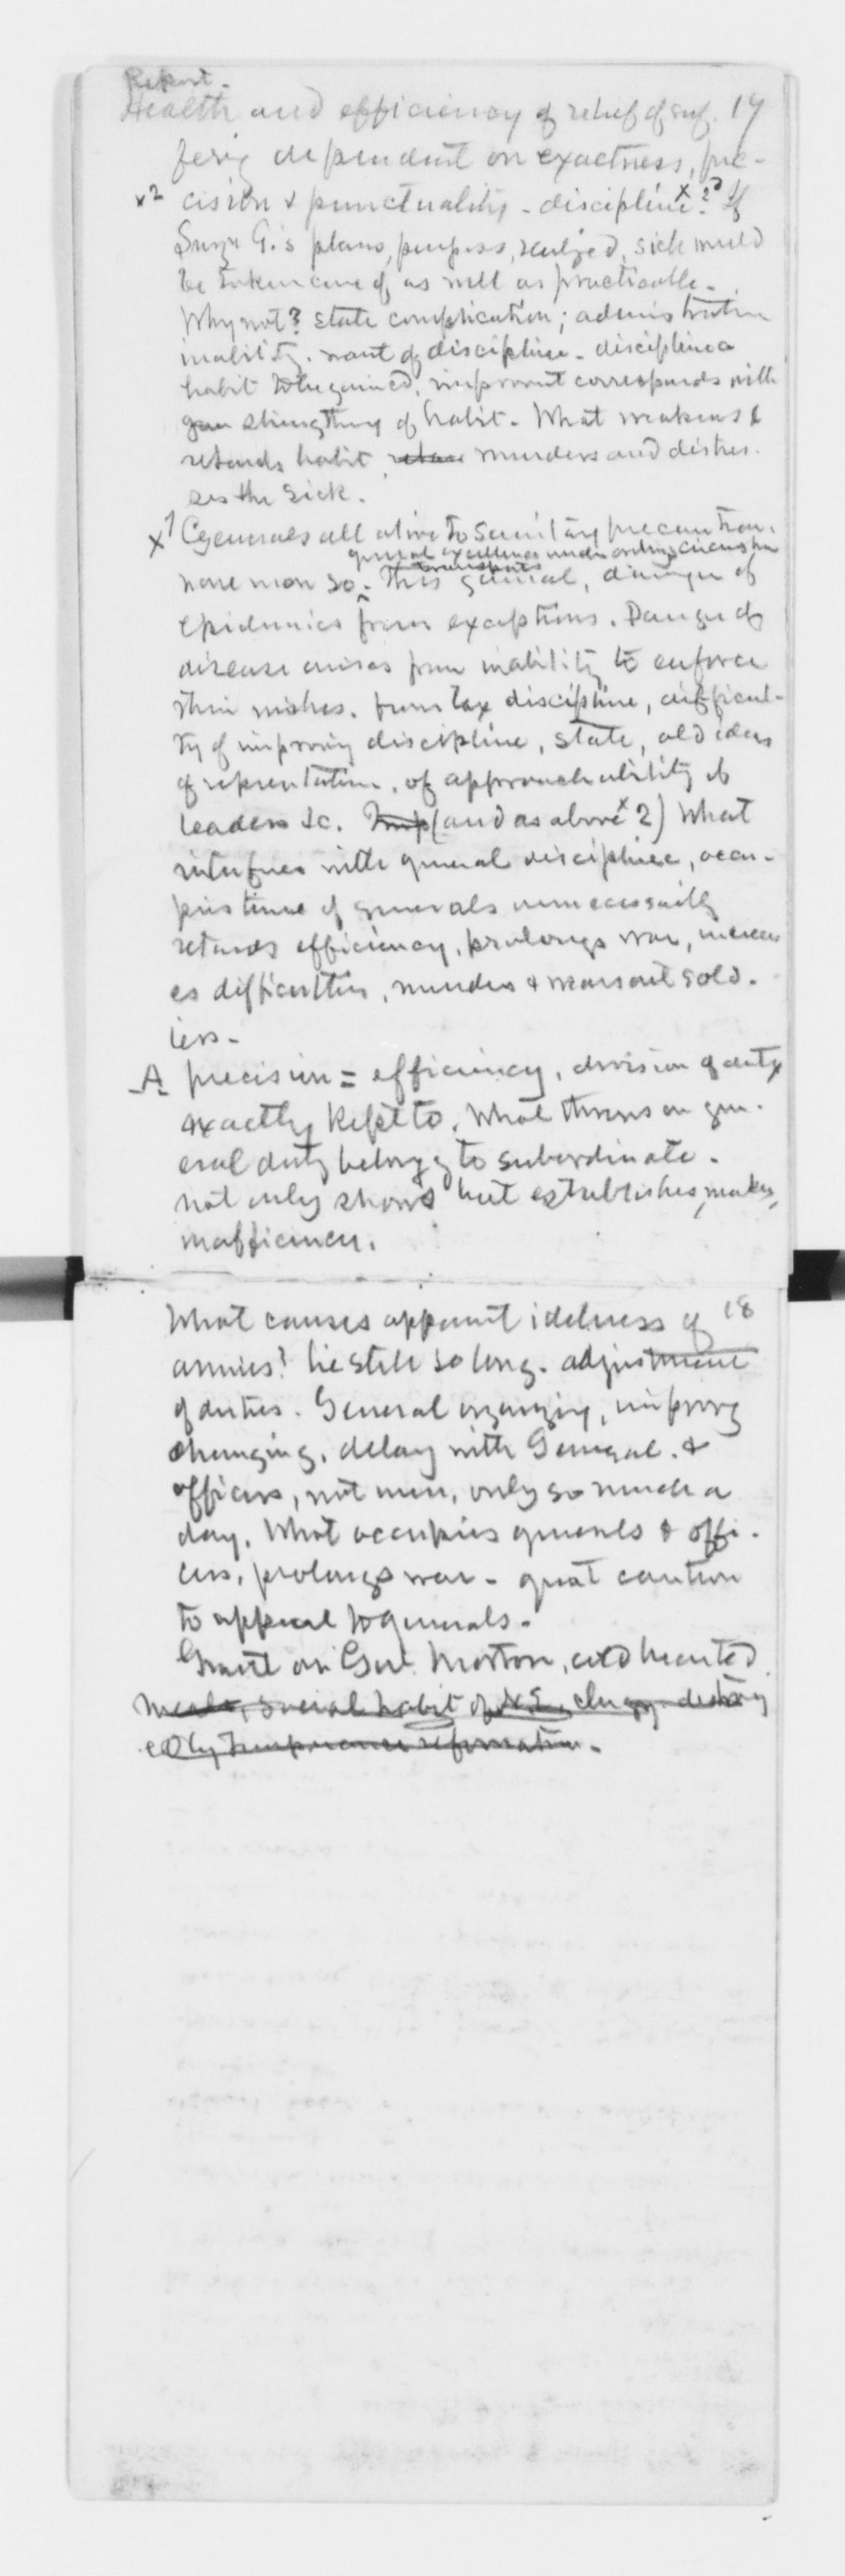 Report.
Health and efficiency of relief of suf- 17
fering dependent on exactness, pre-
x2 cision & punctuality - discipline. x 2? If
Surgn G.'s plans, purposes, realized, sick would
be taken care of as well as practicable.
Why not? State complication; administration
inability. want of discipline - discipline a
habit to be gained, improvmt corresponds with
strengthng of habit. What weakens &
retards habit murders and distres-
ses the sick.
x1 Generals all alive to sanitary precaution.
general excellence under circumstan
none more so. This general, danger of
epidemics from exceptions. Danger of
disease arises from inability to enforce
their wishes. from lax discipline, difficul-
ty of improving discipline, state, old ideas
of representation, of approachability of
leaders &c. (and as above x 2) What
interferes with general discipline, occu-
pies time of generals unnecessarily
retards efficiency, prolongs war, increas
es difficulties, murders & wears out sold-
iers -
A precision = efficiency, division of duty
exactly kept to. What throws on gen-
eral duty belongg to subordinate -
not only shows but establishes, makes,
inefficiency.
What causes apparent idelness of 18
armies? lie still so long. adjustment
of duties. General organizing, improvg
changing, delay with General. &
officers, not men, only so much a
day. What occupies generals & offi-
cers, prolongs war - great caution
to appeal to generals -
Grant on Gov. Morton, cold hearted
Meals, social habit of N.E. clergy destroy
ed by temperance reformation -